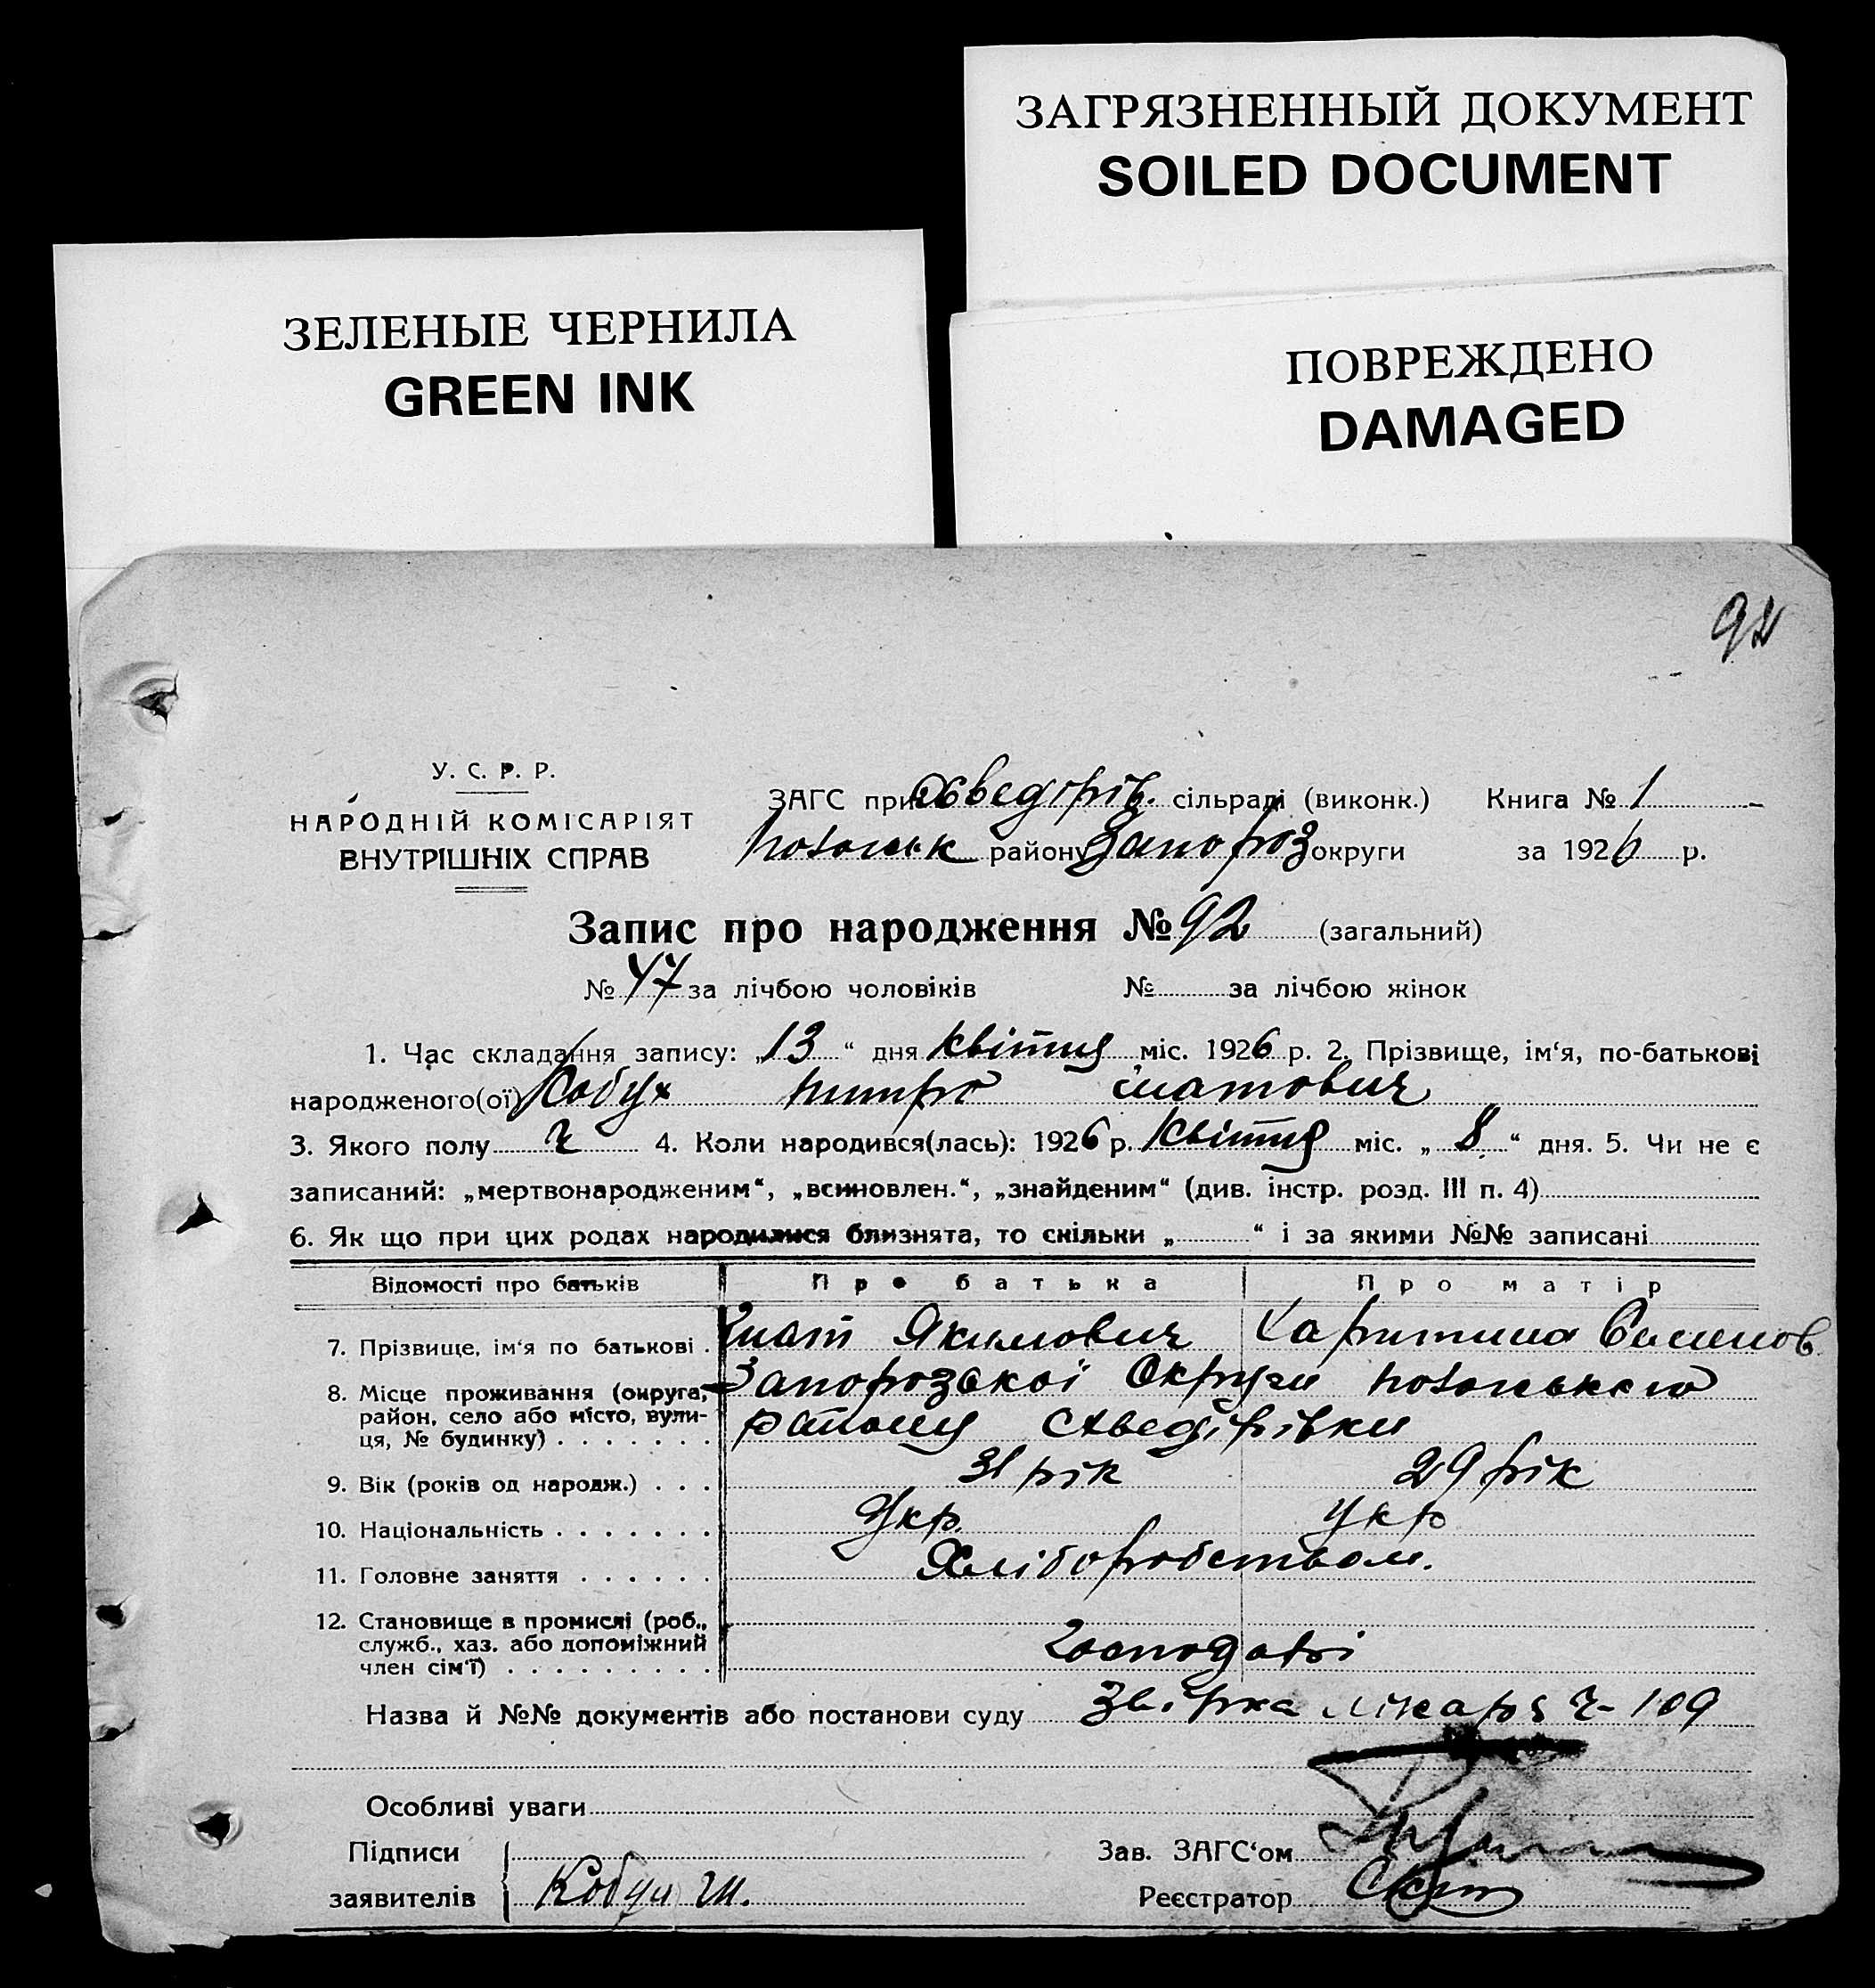 ЗАГРЯЗНЕННЫЙ ДОКУМЕНТ
SOILED DOCUMENT
ЗЕЛЕНЫЕ ЧЕРНИЛА
GREEN INK
ПОВРЕЖДЕНО
DAMAGED
92
У. С. Р. Р.
НАРОДНІЙ КОМІСАРІЯТ
ВНУТРІШНІХ СПРАВ
ЗАГС при Хведорів. сільраді (виконк.) Книга № 1
району Запороз округи за 1926 р.
Запис про народження № 92 (загальний)
№ 47 за лічбою чоловіків № за лічбою жінок
1. Час складання запису: „13“ дня квітня міс. 1926 р. 2. Прізвище, ім‘я, по-батькові
народженого(ої) Кобух
3. Якого полу ч 4. Коли народився(лась): 1926 р. Квітня міс. „8“ дня. 5. Чи не є
записаний: „мертвонародженим“, „всиновлен.“, „знайденим“ (див. інстр. розд. III п. 4)
6. Як що при цих родах народилися близнята, то скільки „ “ і за якими №№ записані
Відомості про батьків Про батька Про матір
7. Прізвище, ім‘я по батькові Гнат Якимович Харитина Семенов
8. Місце проживання (округа, район, село або місто, вулиця, № будинку) Запорозської Округи
району
9. Вік (років од народж.) 31 рік 29 рік
10. Національність Укр. Укр
11. Головне заняття Хліборобством.
12. Становище в промислі (роб.,
служб., хаз. або допоміжний
член сім‘ї) господарі
Назва й №№ документів або постанови суду лікаря ч- 109
Особливі уваги
Підписи
заявителів Кобух
Зав. ЗАГС‘ом
Реєстратор